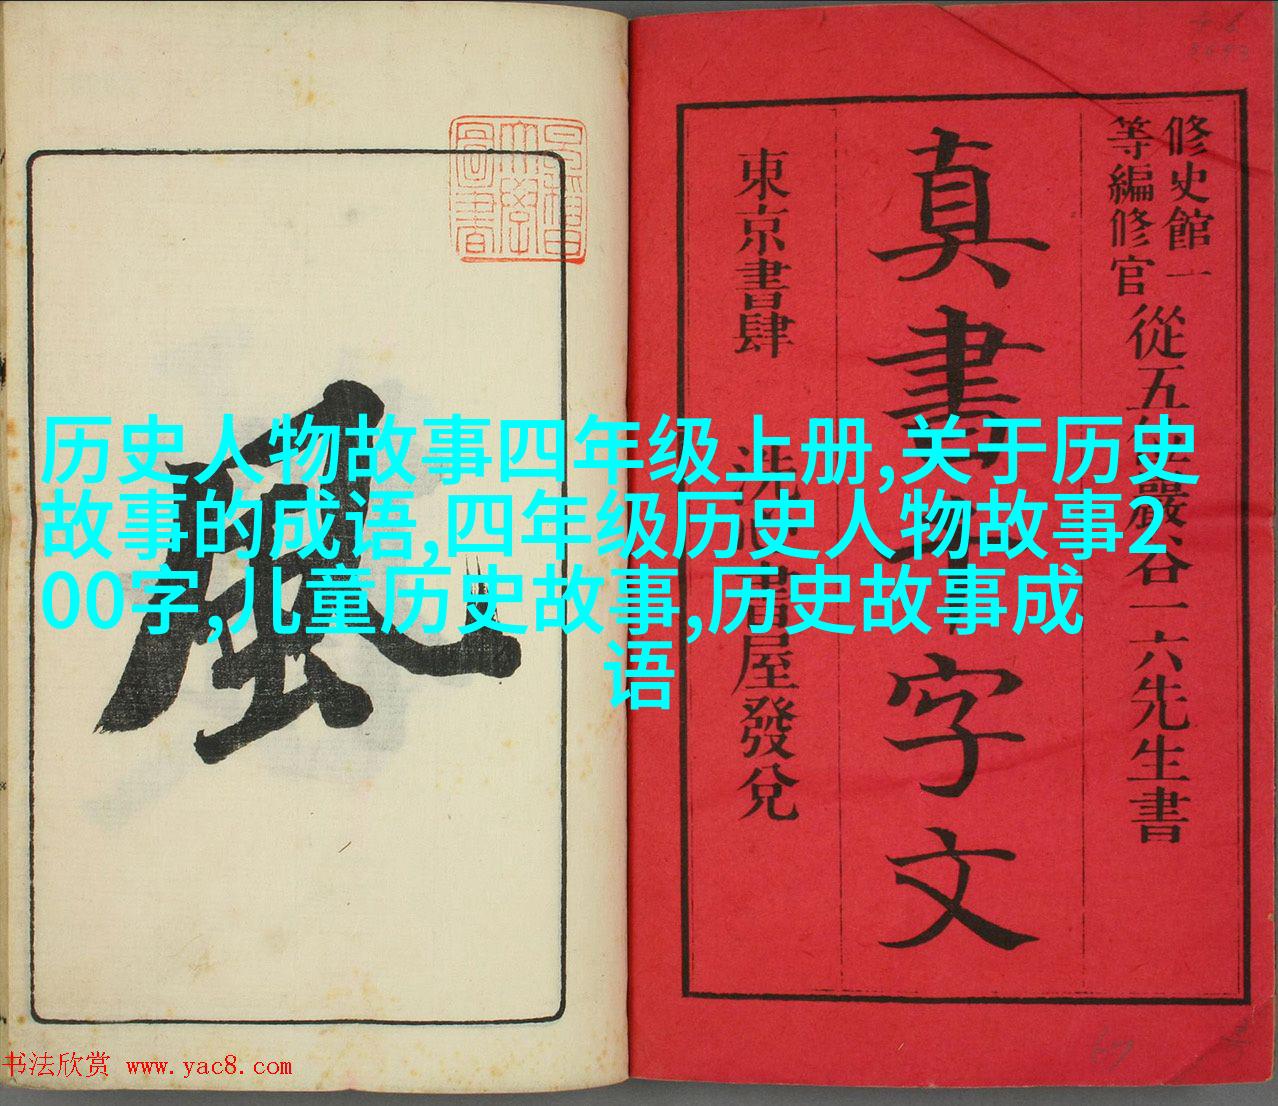 历史人物故事四年级上册,关于历史
故事的成语,四年级历史人物故事2
00字,儿童历史故事,历史故事成
语
修史館一
等編修官
從五位巖谷一六先生書
真書千字文
東京書肆
屋發兌
風
書法欣赏 www.yac8.com